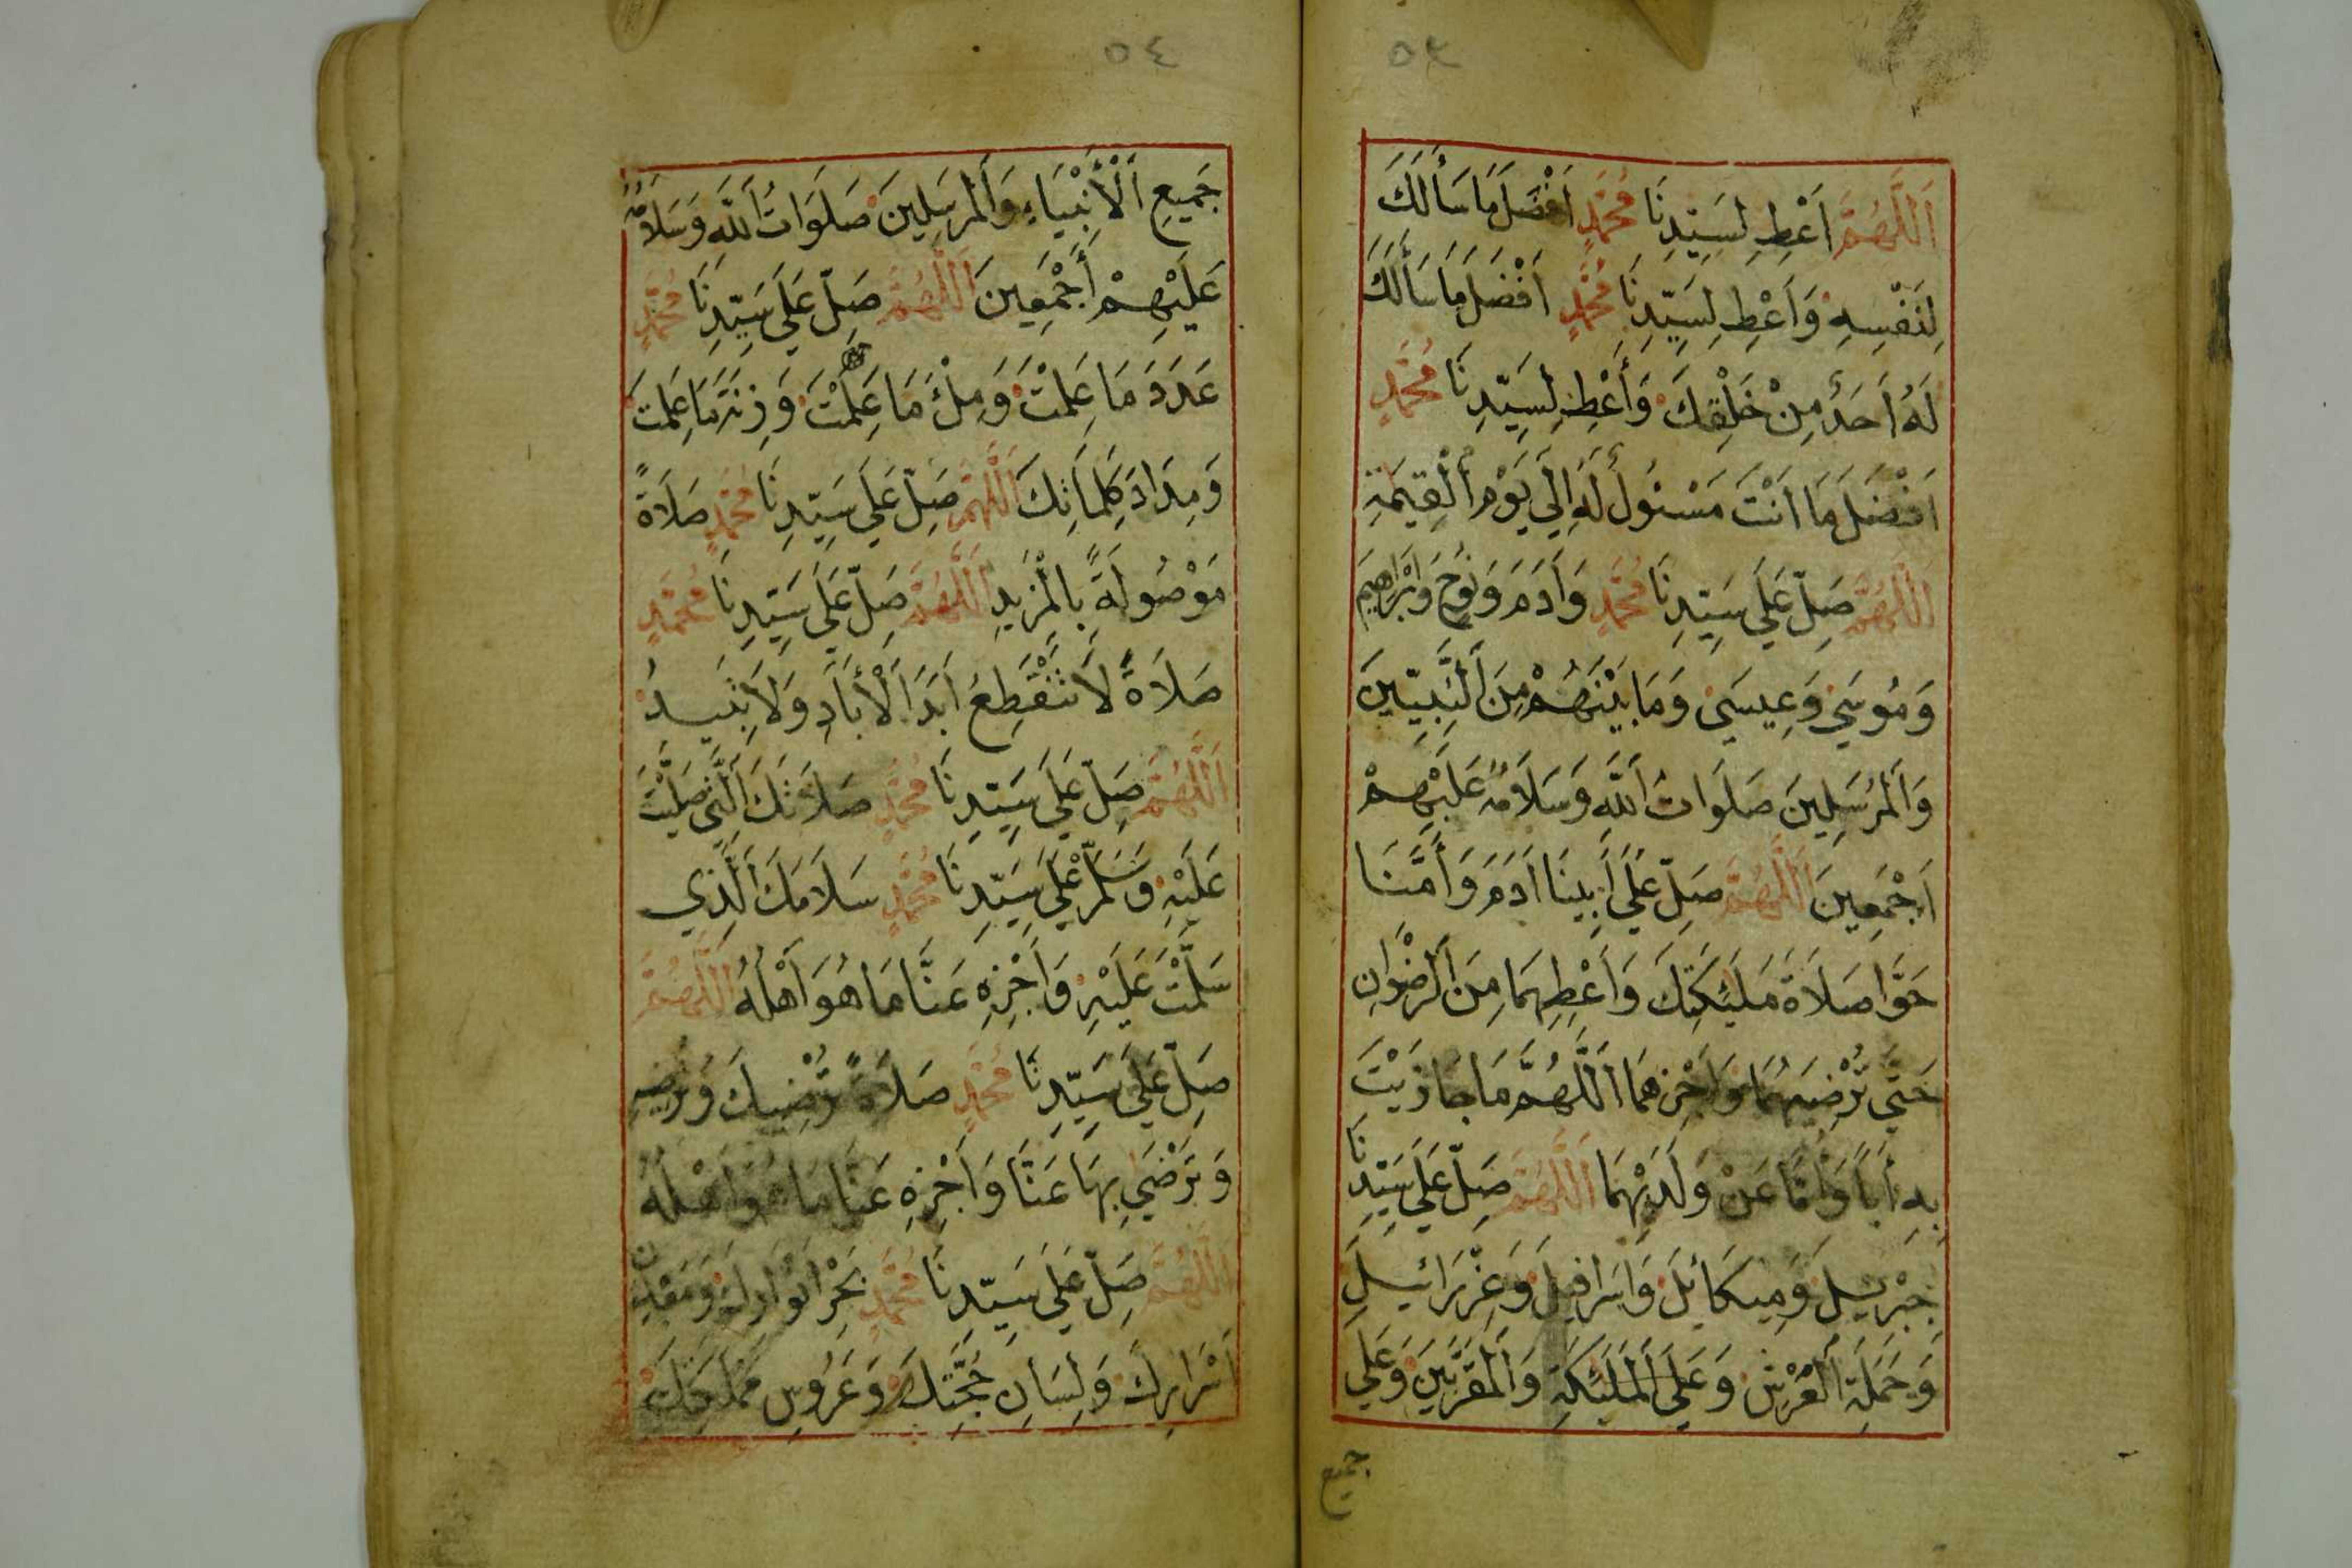 ٥٣
اَللّٰهُمَّ اَعْطِ لِسَيِّدِنَا مُحَمَّدٍ اَفْضَلَ مَا سَأَلَكَ
لِنَفْسِهِ وَاَعْطِ لِسَيِّدِنَا مُحَمَّدٍ اَفْضَلَ مَا سَأَلَكَ
لَهُ اَحَدٌ مِنْ خَلْقِكَ وَأَعْطِ لِسَيِّدِنَا مُحَمَّدٍ
اَفْضَلَ مَا اَنْتَ مَسْئُولٌ لَهُ اِلَي يَوْمِ الْقِيٰمَةِ
اَللّٰهُمَّ صَلِّ عَلَي سَيِّدِنَا مُحَمَّدٍ وَاَدَمَ وَنُوحٍ وَاِبْرَاهِيمَ
وَمُوسَي وَعِيسَي وَمَا بَيْنَهُمْ مِنَ النَّبِيّينَ
وَالْمُرْسَلِينَ صَلَوَاتُ اللّٰهِ وَسَلَامُهُ عَلَيْهِمْ
اَجْمَعِينَ اَللّٰهُمَّ صَلِّ عَلَي اَبِينَا اَدَمَ وَأُمَّنَا
حَوَّا صَلَاةَ مَلٰئِكَتِكَ وَاَعْطِهِمَا مِنَ الرِّضْوَانِ
حَتَّي تُرْضِيَهُمَا وَاجْزِهِمَا اَللّٰهُمَّ مَا جَازَيْتَ
بِهِ اَبًا وَاُمًّا عَنْ وَلَدَيْهِمَا اَللّٰهُمَّ صَلِّ عَلَي سَيِّدِنَا
جِبْرِيلَ وَمِيكَائِلَ وَاِسْرَافِيلَ وَعِزْرَائِيلَ
وَحَمَلَةِ الْعَرْشِ وَعَلَي الْمَلٰئِكَةِ وَالْمُقَرَّبِينَ وَعَلَي
جميع
٥٤
جَمِيعِ اَلْأَنْبِيَاءِ وَالْمُرْسَلِينَ صَلَوَاتُ اللّٰهِ وَسَلَامُهُ
عَلَيْهِمْ أَجْمَعِينَ اَللّٰهُمَّ صَلِّ عَلَي سَيِّدِنَا مُحَمَّدٍ
عَدَدَ مَا عَلِمْتَ وَمِلْأَ مَا عَلِمْتَ وَزِنَةَ مَا عَلِمْتَ
وَمِدَادَ كَلِمَاتِكَ اَللّٰهُمَّ صَلِّ عَلَي سَيِّدِنَا مُحَمَّدٍ صَلَاةً
مَوْصُولَةً بِالْمَزِيدِ اَللّٰهُمَّ صَلِّ عَلَي سَيِّدِنَا مُحَمَّدٍ
صَلَاةً لَا تَنْقَطِعُ اَبَدَ اَلْأَبَادِ وَلَا تَبِيدُ
اَللّٰهُمَّ صَلِّ عَلَي سَيِّدِنَا مُحَمَّدٍ صَلَاتَكَ الَّتِي صَلَّيْتَ
عَلَيْهِ وَسَلِّمْ عَلَي سَيِّدِنَا مُحَمَّدٍ سَلَامَكَ الَّذِي
سَلَّمْتَ عَلَيْهِ وَاَجْزِهِ عَنَّا مَا هُوَ أَهْلُهُ اَللّٰهُمَّ
صَلِّ عَلَي سَيِّدِنَا مُحَمَّدٍ صَلَاةً تُرْضِيكَ وَتُرْضِيهِ
وَتَرْضَي بِهَا عَنَّا وَاَجْزِهِ عَنَّا مَا هُوَ اَهْلُهُ
اَللّٰهُمَّ صَلِّ عَلَي سَيِّدِنَا مُحَمَّدٍ بَحْرِ اَنْوَارِكَ وَمَعْدِنِ
اَسْرَارِكَ وَلِسَانِ حُجَّتِكَ وَعَرُوسِ مَمْلَكَتِكَ